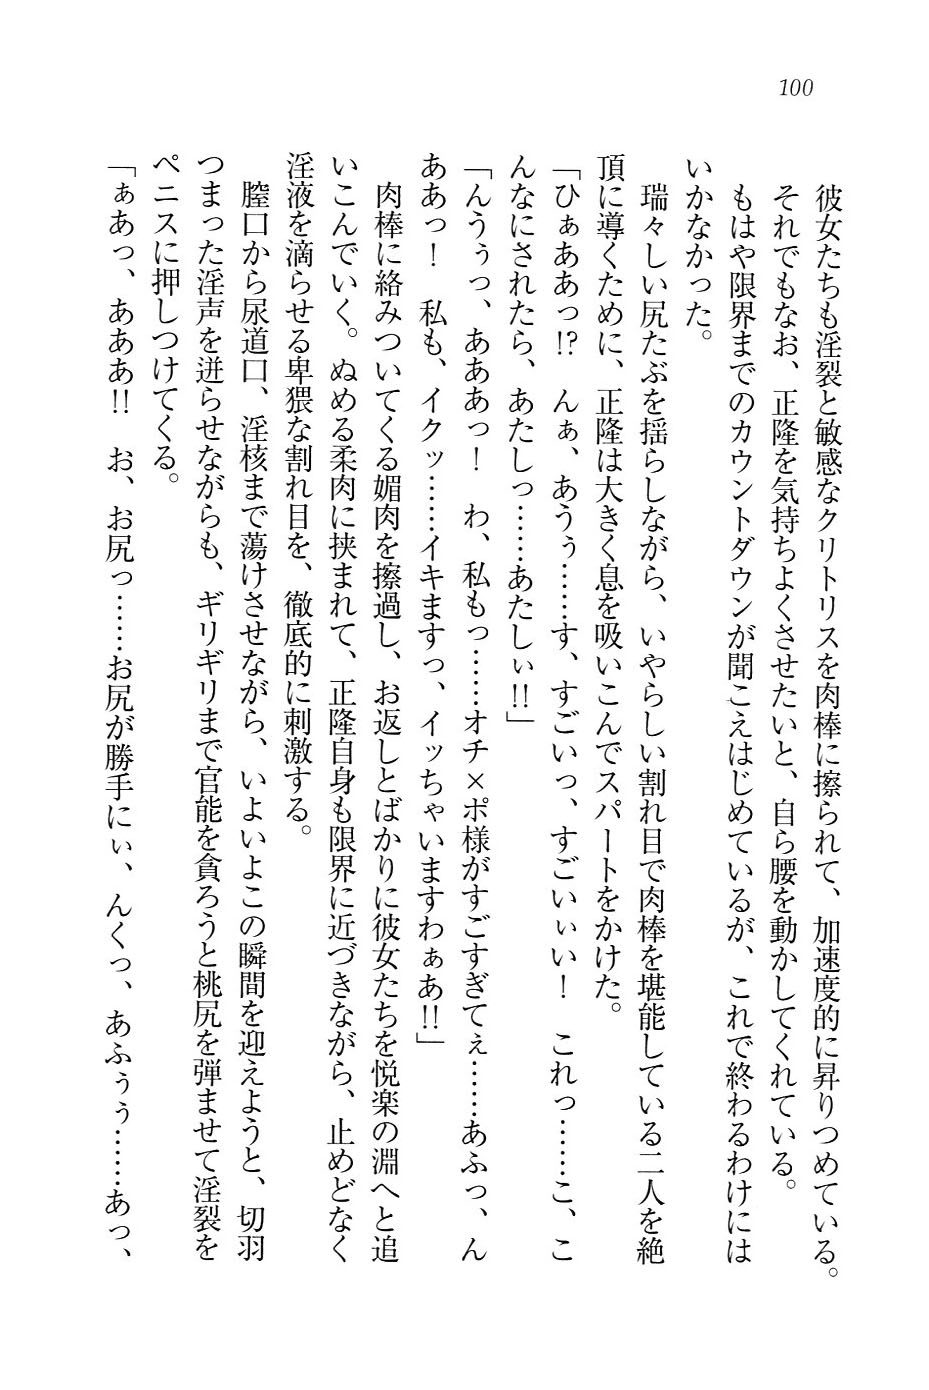 100
彼女たちも淫裂と敏感なクリトリスを肉棒に擦られて、加速度的に昇りつめている。
それでもなお、正隆を気持ちよくさせたいと、自ら腰を動かしてくれている。
もはや限界までのカウントダウンが聞こえはじめているが、これで終わるわけには
いかなかった。
瑞々しい尻たぶを揺らしながら、いやらしい割れ目で肉棒を堪能している二人を絶
頂に導くために、正隆は大きく息を吸いこんでスパートをかけた。
「ひぁああっ!?　んぁ、あうぅ……す、すごいっ、すごいぃい！　これっ……こ、こ
んなにされたら、あたしっ……あたしぃ!!」
「んうぅっ、あああっ！　わ、私もっ……オチ×ポ様がすごすぎてぇ……あふっ、ん
ああっ！　私も、イクッ……イキますっ、イッちゃいますわぁあ!!」
肉棒に絡みついてくる媚肉を擦過し、お返しとばかりに彼女たちを悦楽の淵へと追
いこんでいく。ぬめる柔肉に挟まれて、正隆自身も限界に近づきながら、止めどなく
淫液を滴らせる卑猥な割れ目を、徹底的に刺激する。
膣口から尿道口、淫核まで蕩けさせながら、いよいよこの瞬間を迎えようと、切羽
つまった淫声を迸らせながらも、ギリギリまで官能を貪ろうと桃尻を弾ませて淫裂を
ペニスに押しつけてくる。
「ぁあっ、あああ!!　お、お尻っ……お尻が勝手にぃ、んくっ、あふぅぅ……あっ、